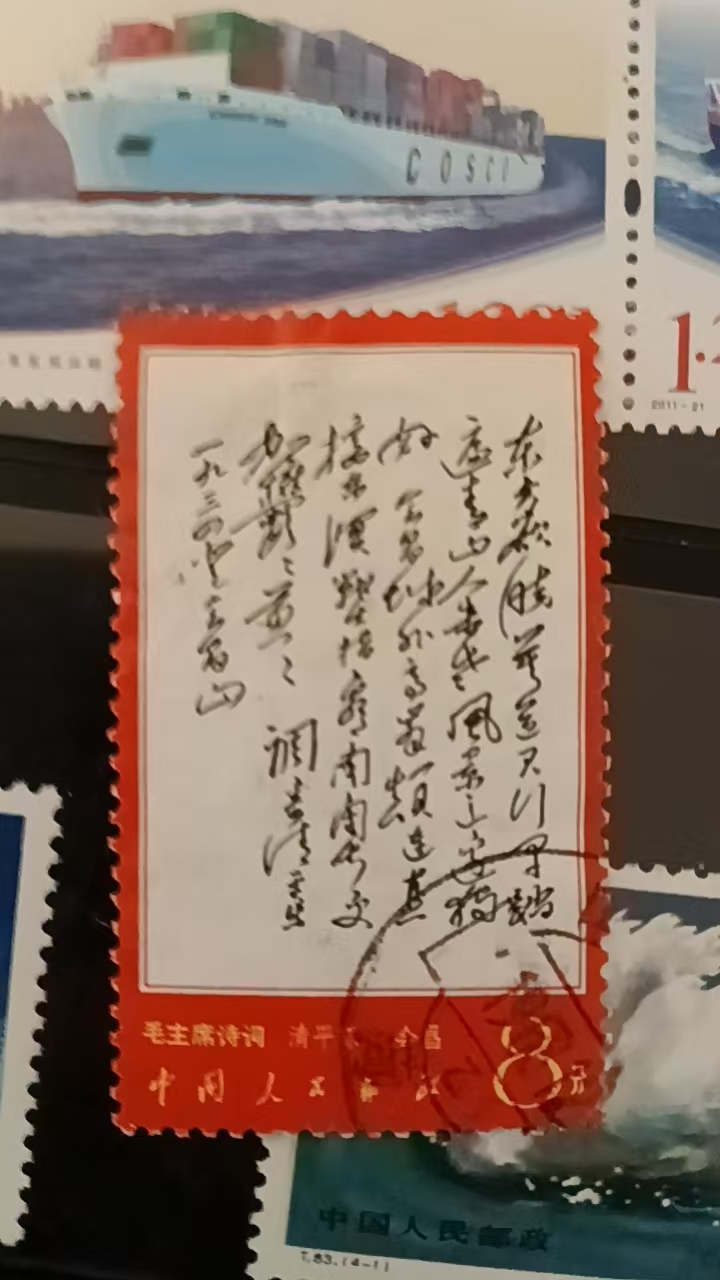 COSCO
1.2
2011-21
东方欲晓莫道君行早踏
遍青山人未老风景这边独
好 会昌城外高峰颠连直
接东溟战士指看南粤更
加郁々葱々 调寄清平乐
一九三四年 会昌山
毛主席诗词 清平乐 会昌
中国人民邮政 8分
中国人民邮政
T.83.(4-1)